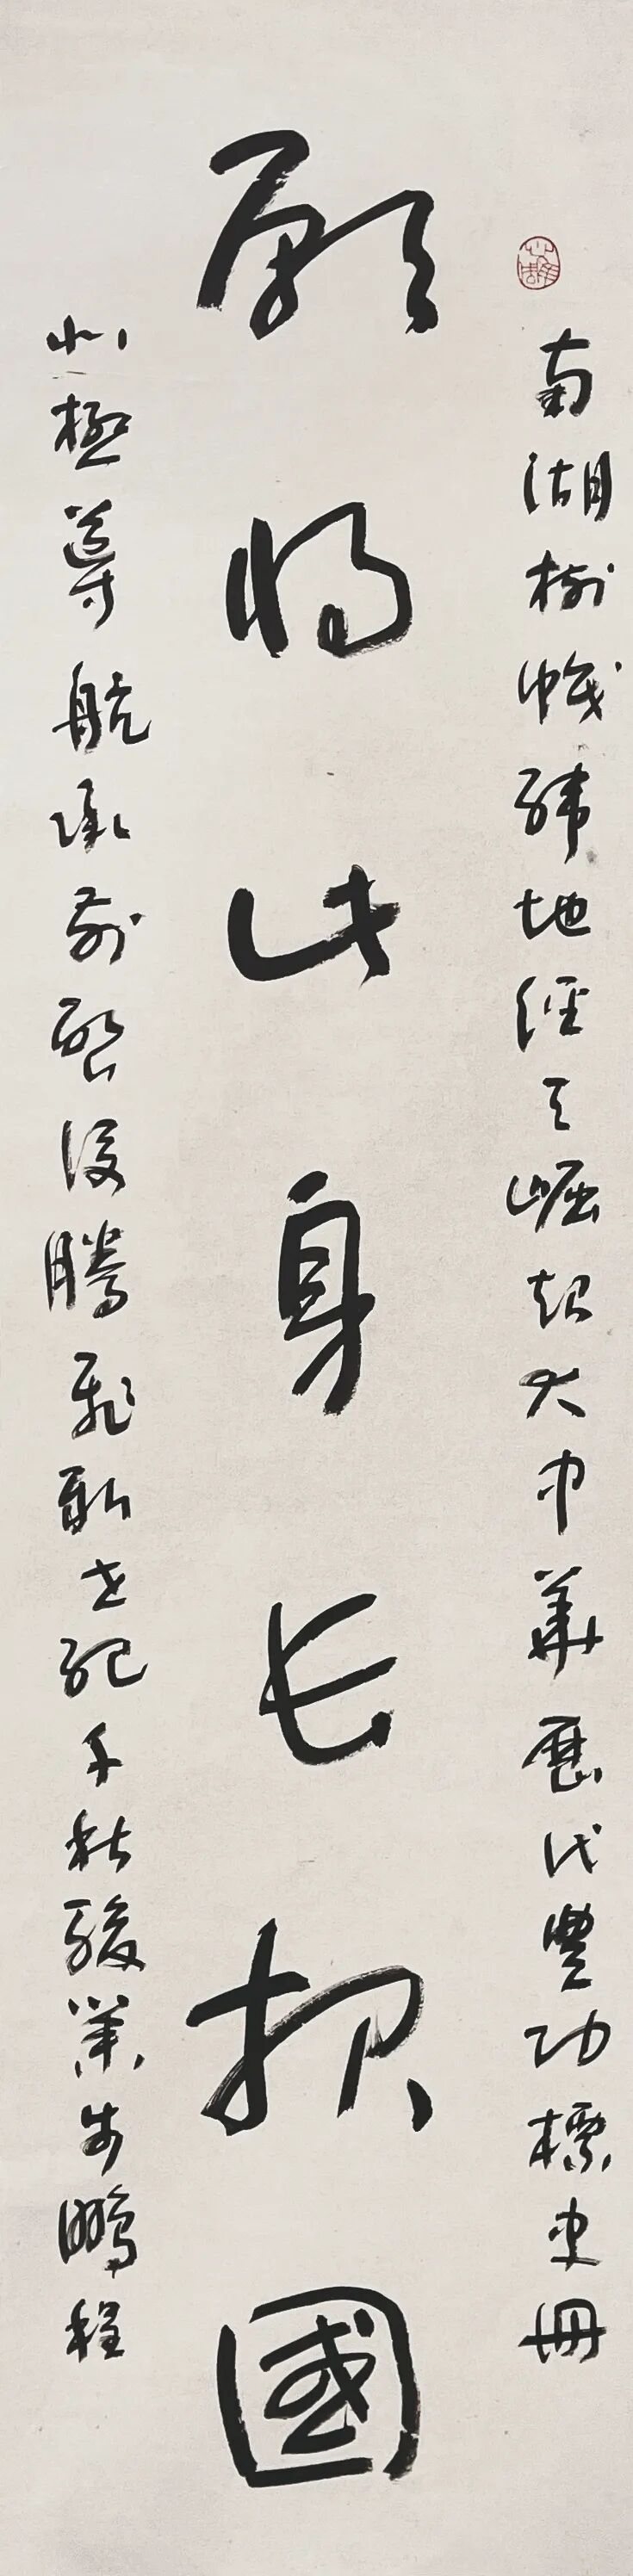 南湖樹幟緯地經天崛起大中華歷代豐功標史冊
願將此身長報國
北極導航承前啓後騰飛新世紀千秋駿業步鵬程